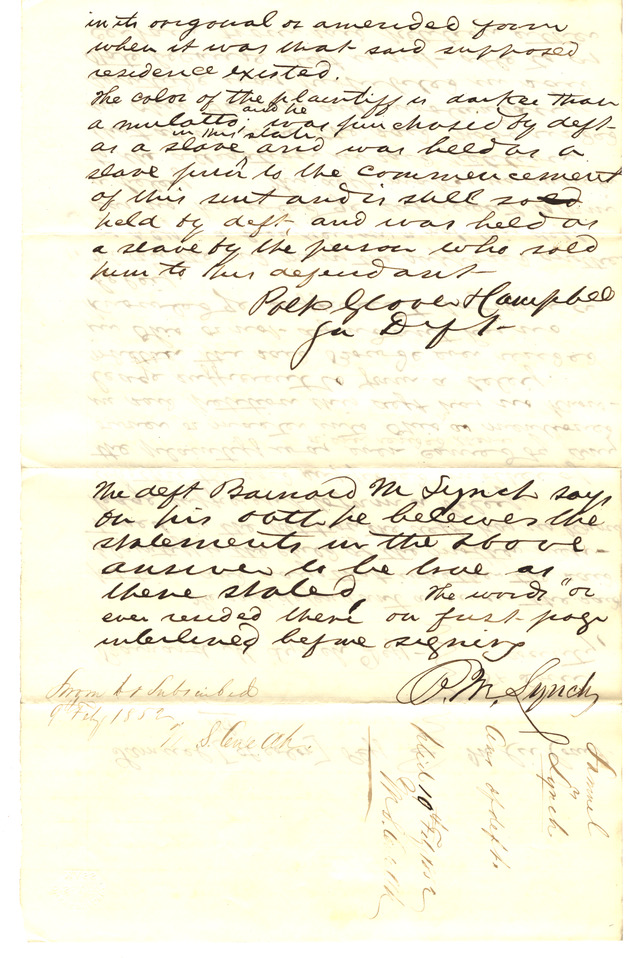 in its origonal or amended form
when it was that said supposed
residence existed.
The color of the plaintiff is darker than
a mulatto. and he was purchased by deft
as a slave in this state and was held as a
slave prior to the commencement
of this suit and is still so
held by deft. and was held as
a slave by the person who sold
him to this defendant
Polk Glover & Campbell
for Deft
The deft Barnard M Lynch says
on his oath he believes the
statements in the above
answer to be true as
there stated, The words "or
ever resided there" on first page
interlined before signing
B. M. Lynch
Sworn to & Subscribed
9 Feby 1852
Samuel
vs
Lynch
Ans of deft
Filed 10th Feby 1852